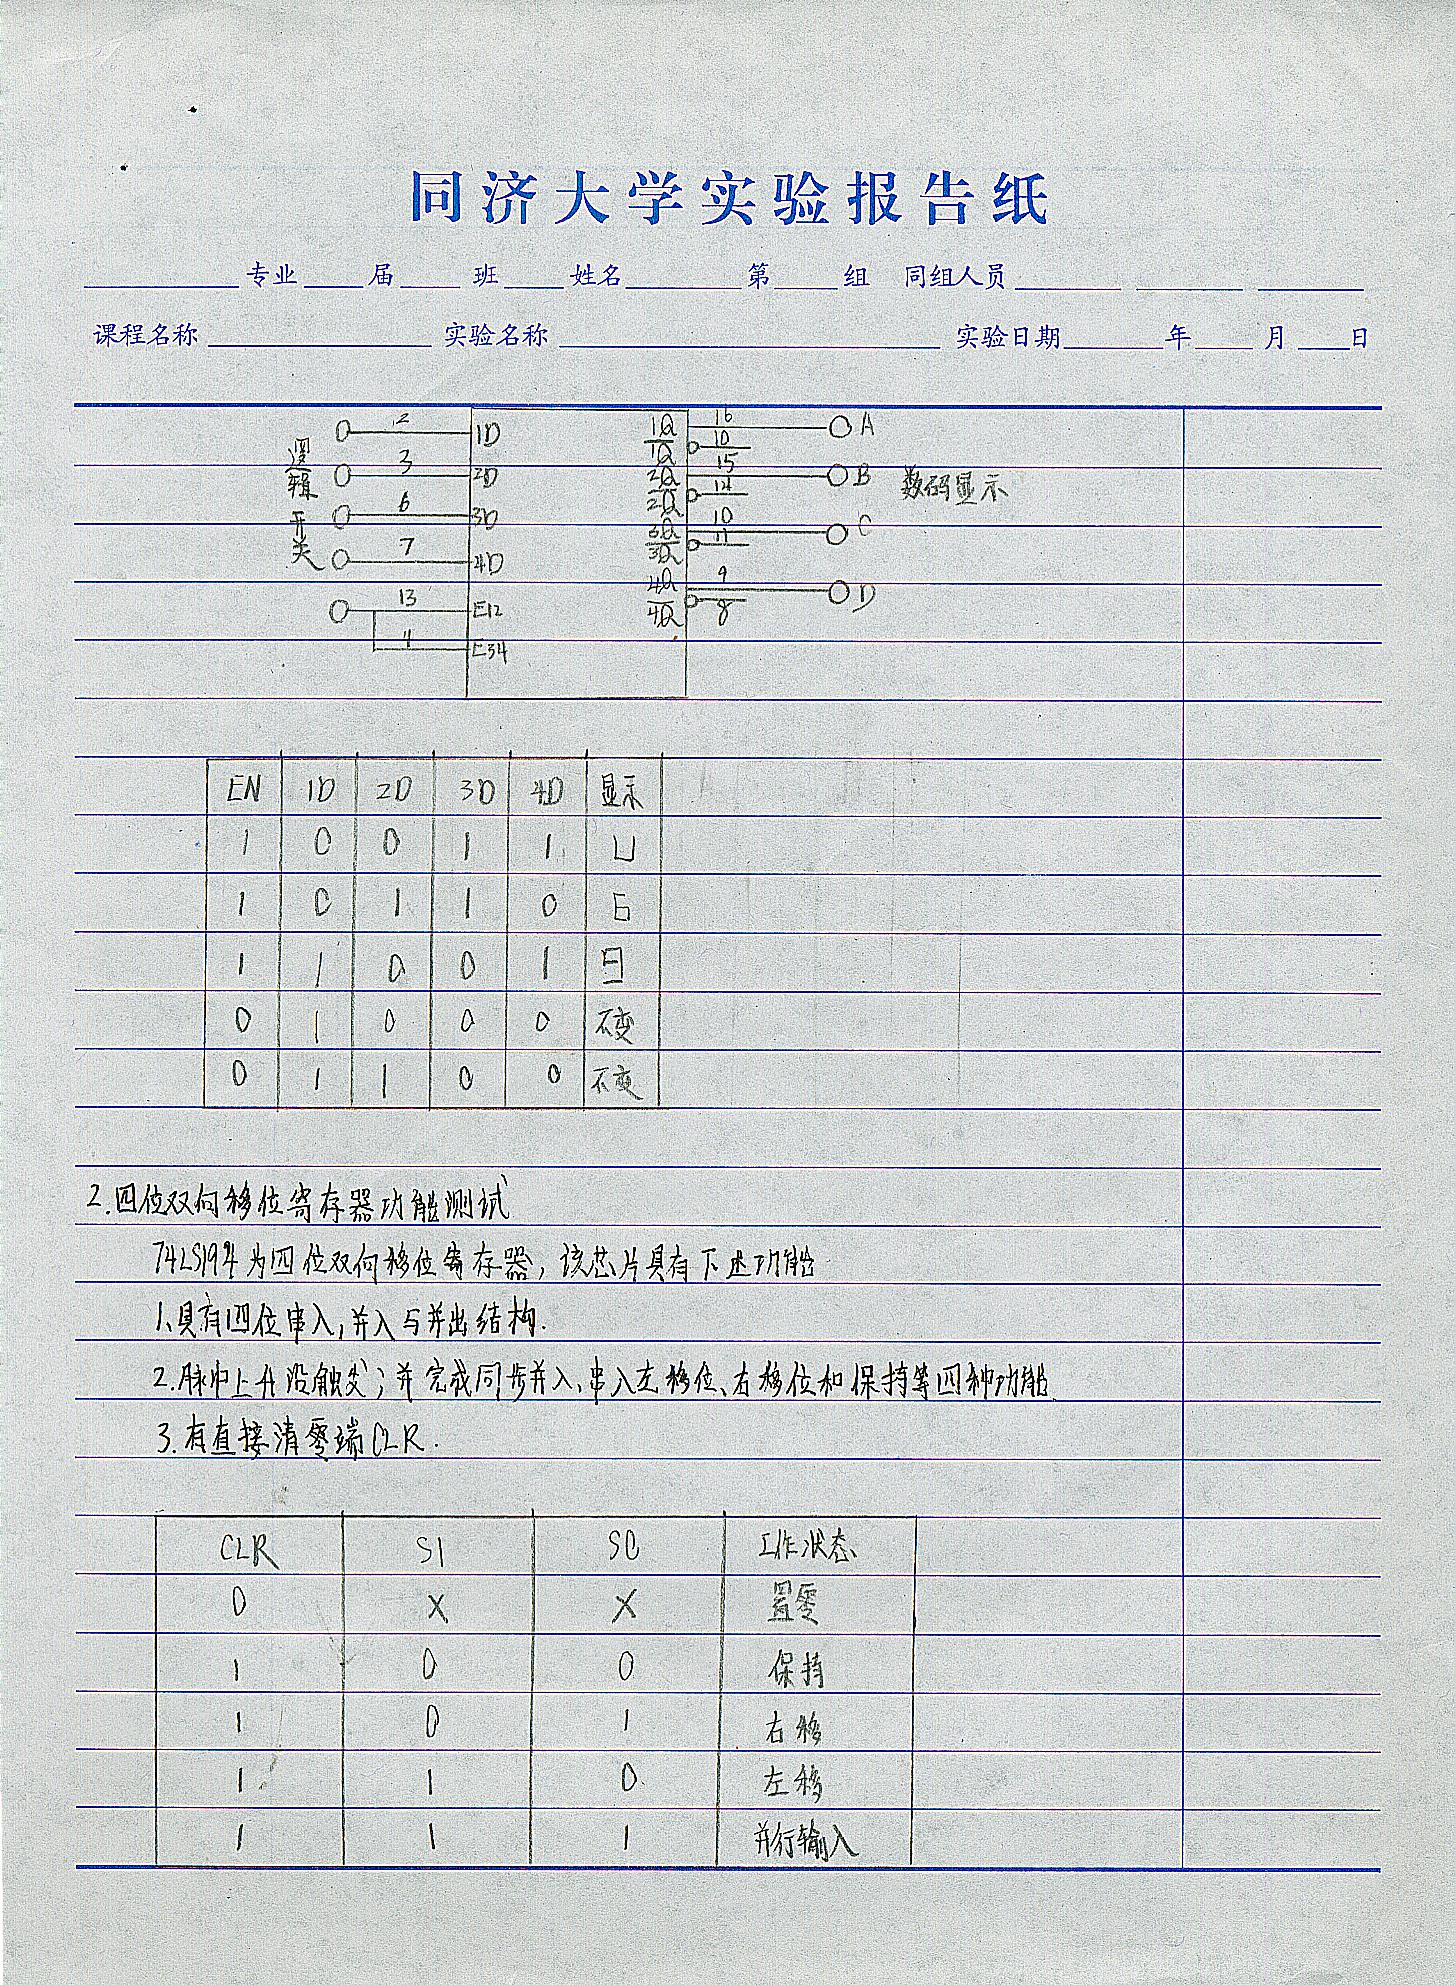 同济大学实验报告纸
专业 届 班 姓名 第 组 同组人员
课程名称 实验名称 实验日期 年 月 日
逻辑开关
2 1D 1Q 16 A
1Q 10
3 2D 2Q 15 B 数码显示
2Q 14
6 3D 3Q 10 C
3Q 11
7 4D 4Q 9 D
4Q 8
13 E12
4 E34
EN 1D 2D 3D 4D 显示
1 0 0 1 1
1 0 1 1 0
1 1 0 0 1
0 1 0 0 0 不变
0 1 1 0 0 不变
2.四位双向移位寄存器功能测试
74LS194为四位双向移位寄存器,该芯片具有下述功能
1.具有四位串入,并入与并出结构.
2.脉冲上升沿触发;并完成同步并入、串入左移位、右移位和保持等四种功能
3.有直接清零端CLR.
CLR S1 S0 工作状态
0 X X 置零
1 0 0 保持
1 0 1 右移
1 1 0 左移
1 1 1 并行输入